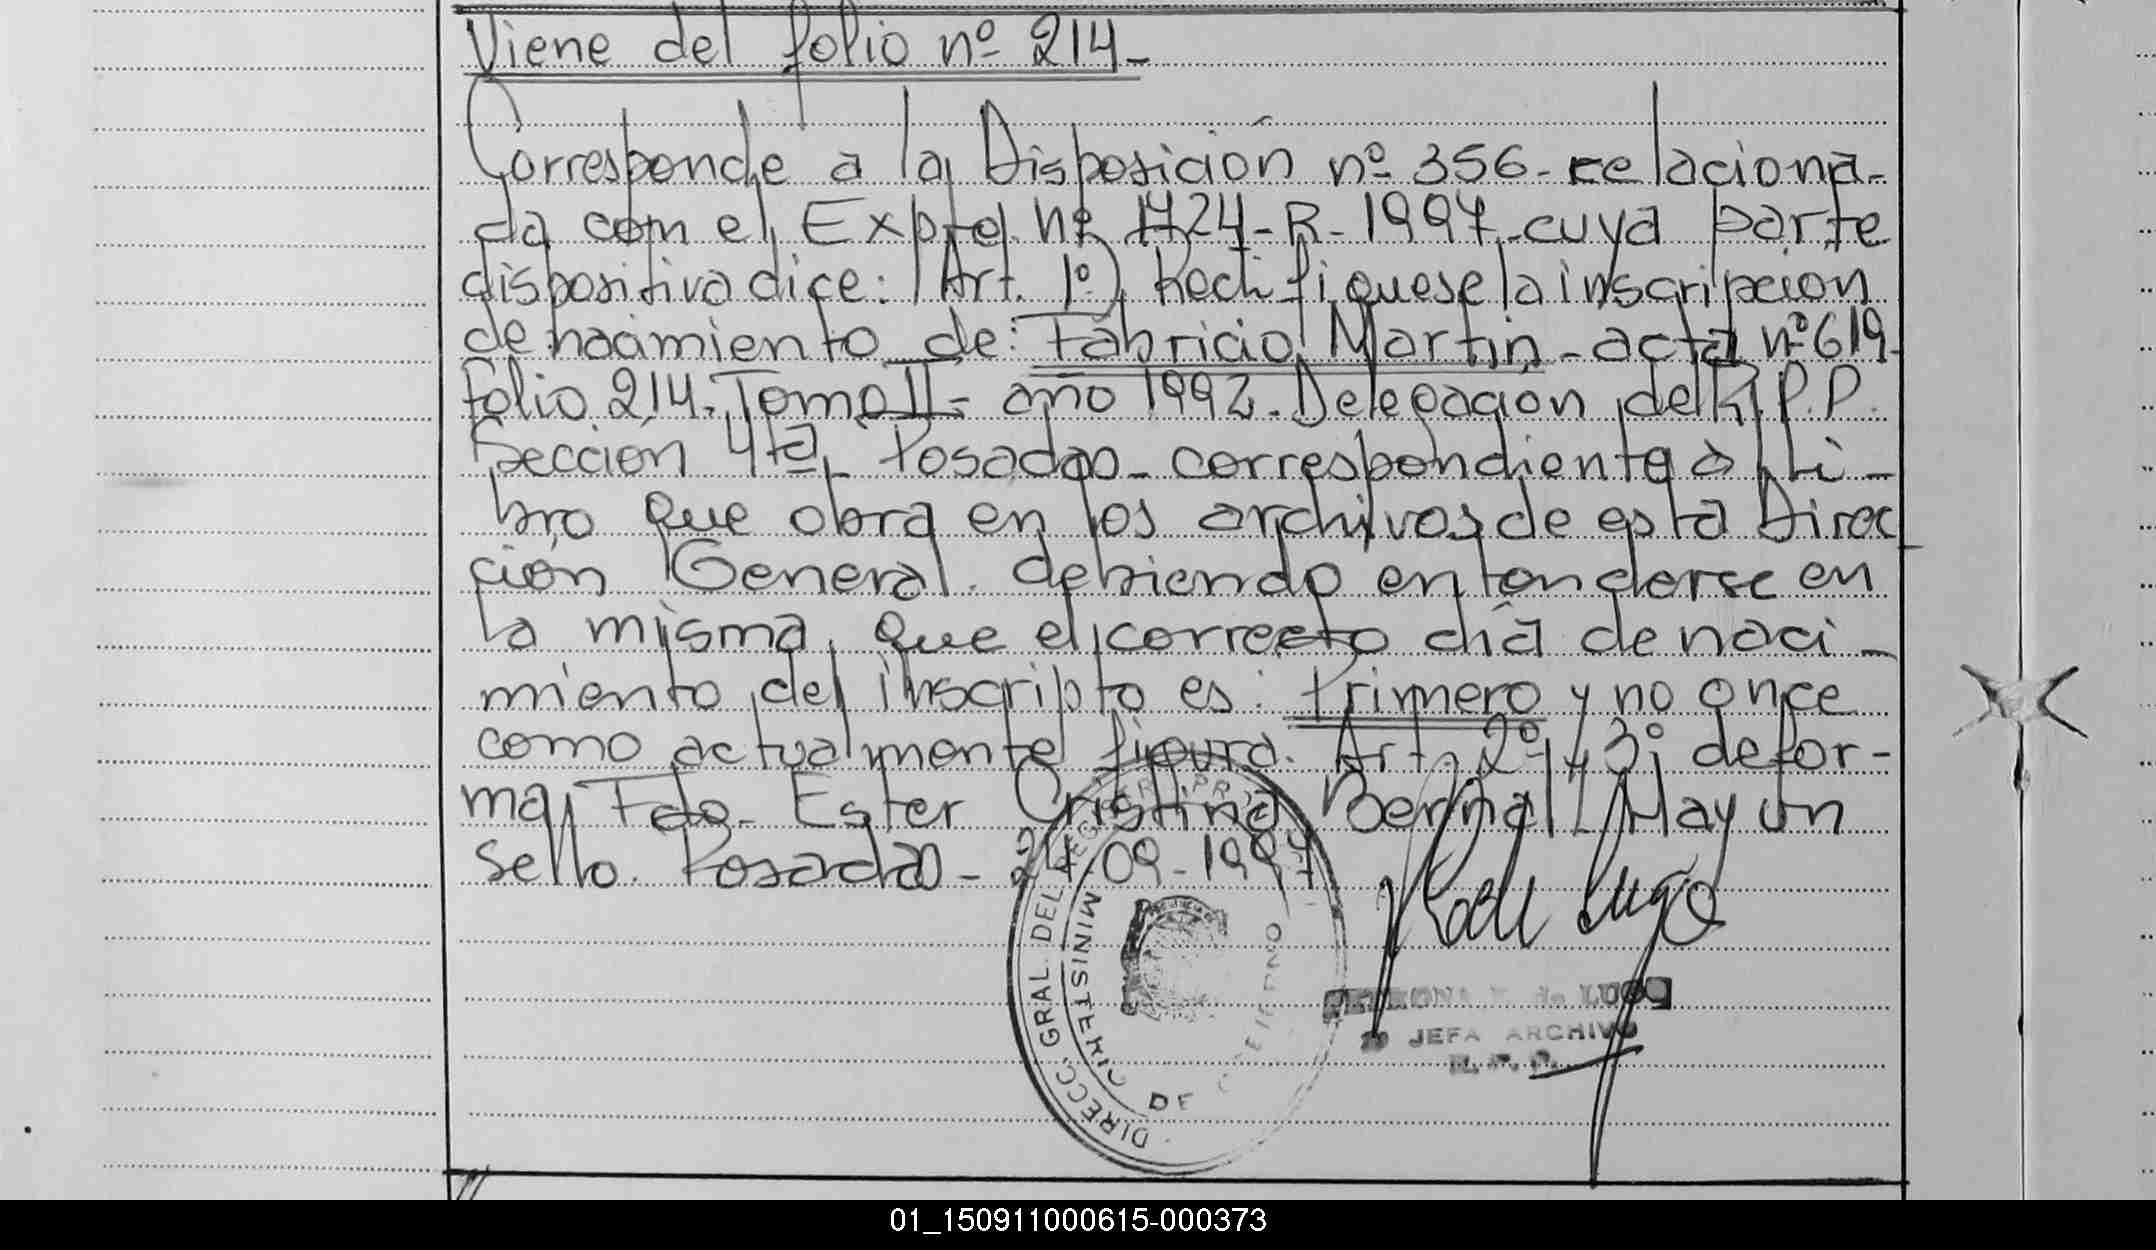 Viene del folio nº 214-
Corresponde a la Disposición nº 356- relaciona-
da con el Expte. nº 1724-R-1997-cuya parte
dispositiva dice: Art. 1º) Rectifiquese la inscripcion
de nacimiento de: Fabricio Martin - acta nº 619-
folio 214- Tomo II- año 1992- Delegación del R.P.P.
Sección 4ta- Posadas- correspondiente a Li-
bro que obra en los archivos de esta Direc
ción General. debiendo entenderse en
la misma, que el correcto día de naci-
miento del inscripto es: Primero y no once
como actualmente figura. Art. 2º y 3º; defor-
ma, Fdo- Ester Cristina Bernal- Hay un
sello. Posadas - 24-09-1997
DIRECC. GRAL. DEL
MINISTERIO
DE GOBIERNO
de LUGO
JEFA ARCHIVO
R. P. P.
01_150911000615-000373